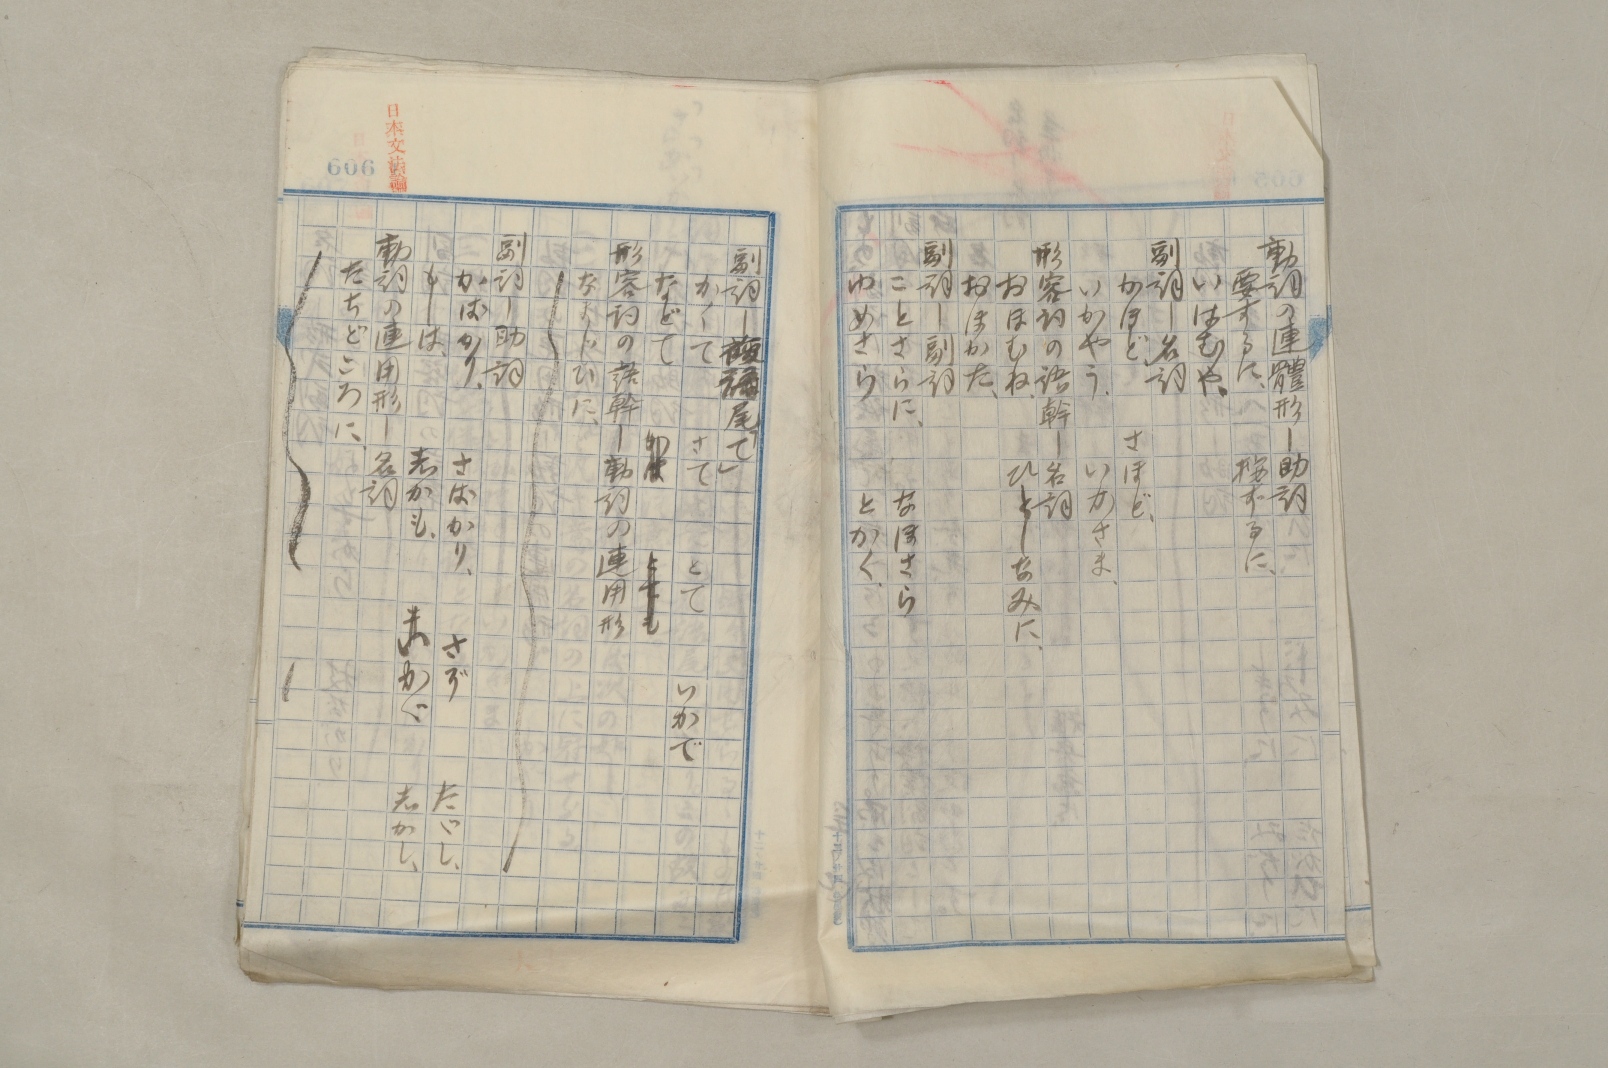 動詞の連體形ー助詞
要するに、 按ずるに、
いはむや、
副詞ー名詞
かほど、 さほど、
いかやう、 いかさま、
形容詞の語幹ー名詞
おほむね、 ひとしなみに、
おほかた、
副詞ー副詞
ことさらに、 なほさら
ゆめさら とかく、
日本文法論
606
副詞ー接尾「て」
かくて さて とて いかで
などて
形容詞の語幹ー動詞の連用形
ならびに、
副詞ー助詞
かばかり、 さばかり、 さぞ ただし、
もしは、 志かも、 志かし、
動詞の連用形ー名詞
たちどころに、